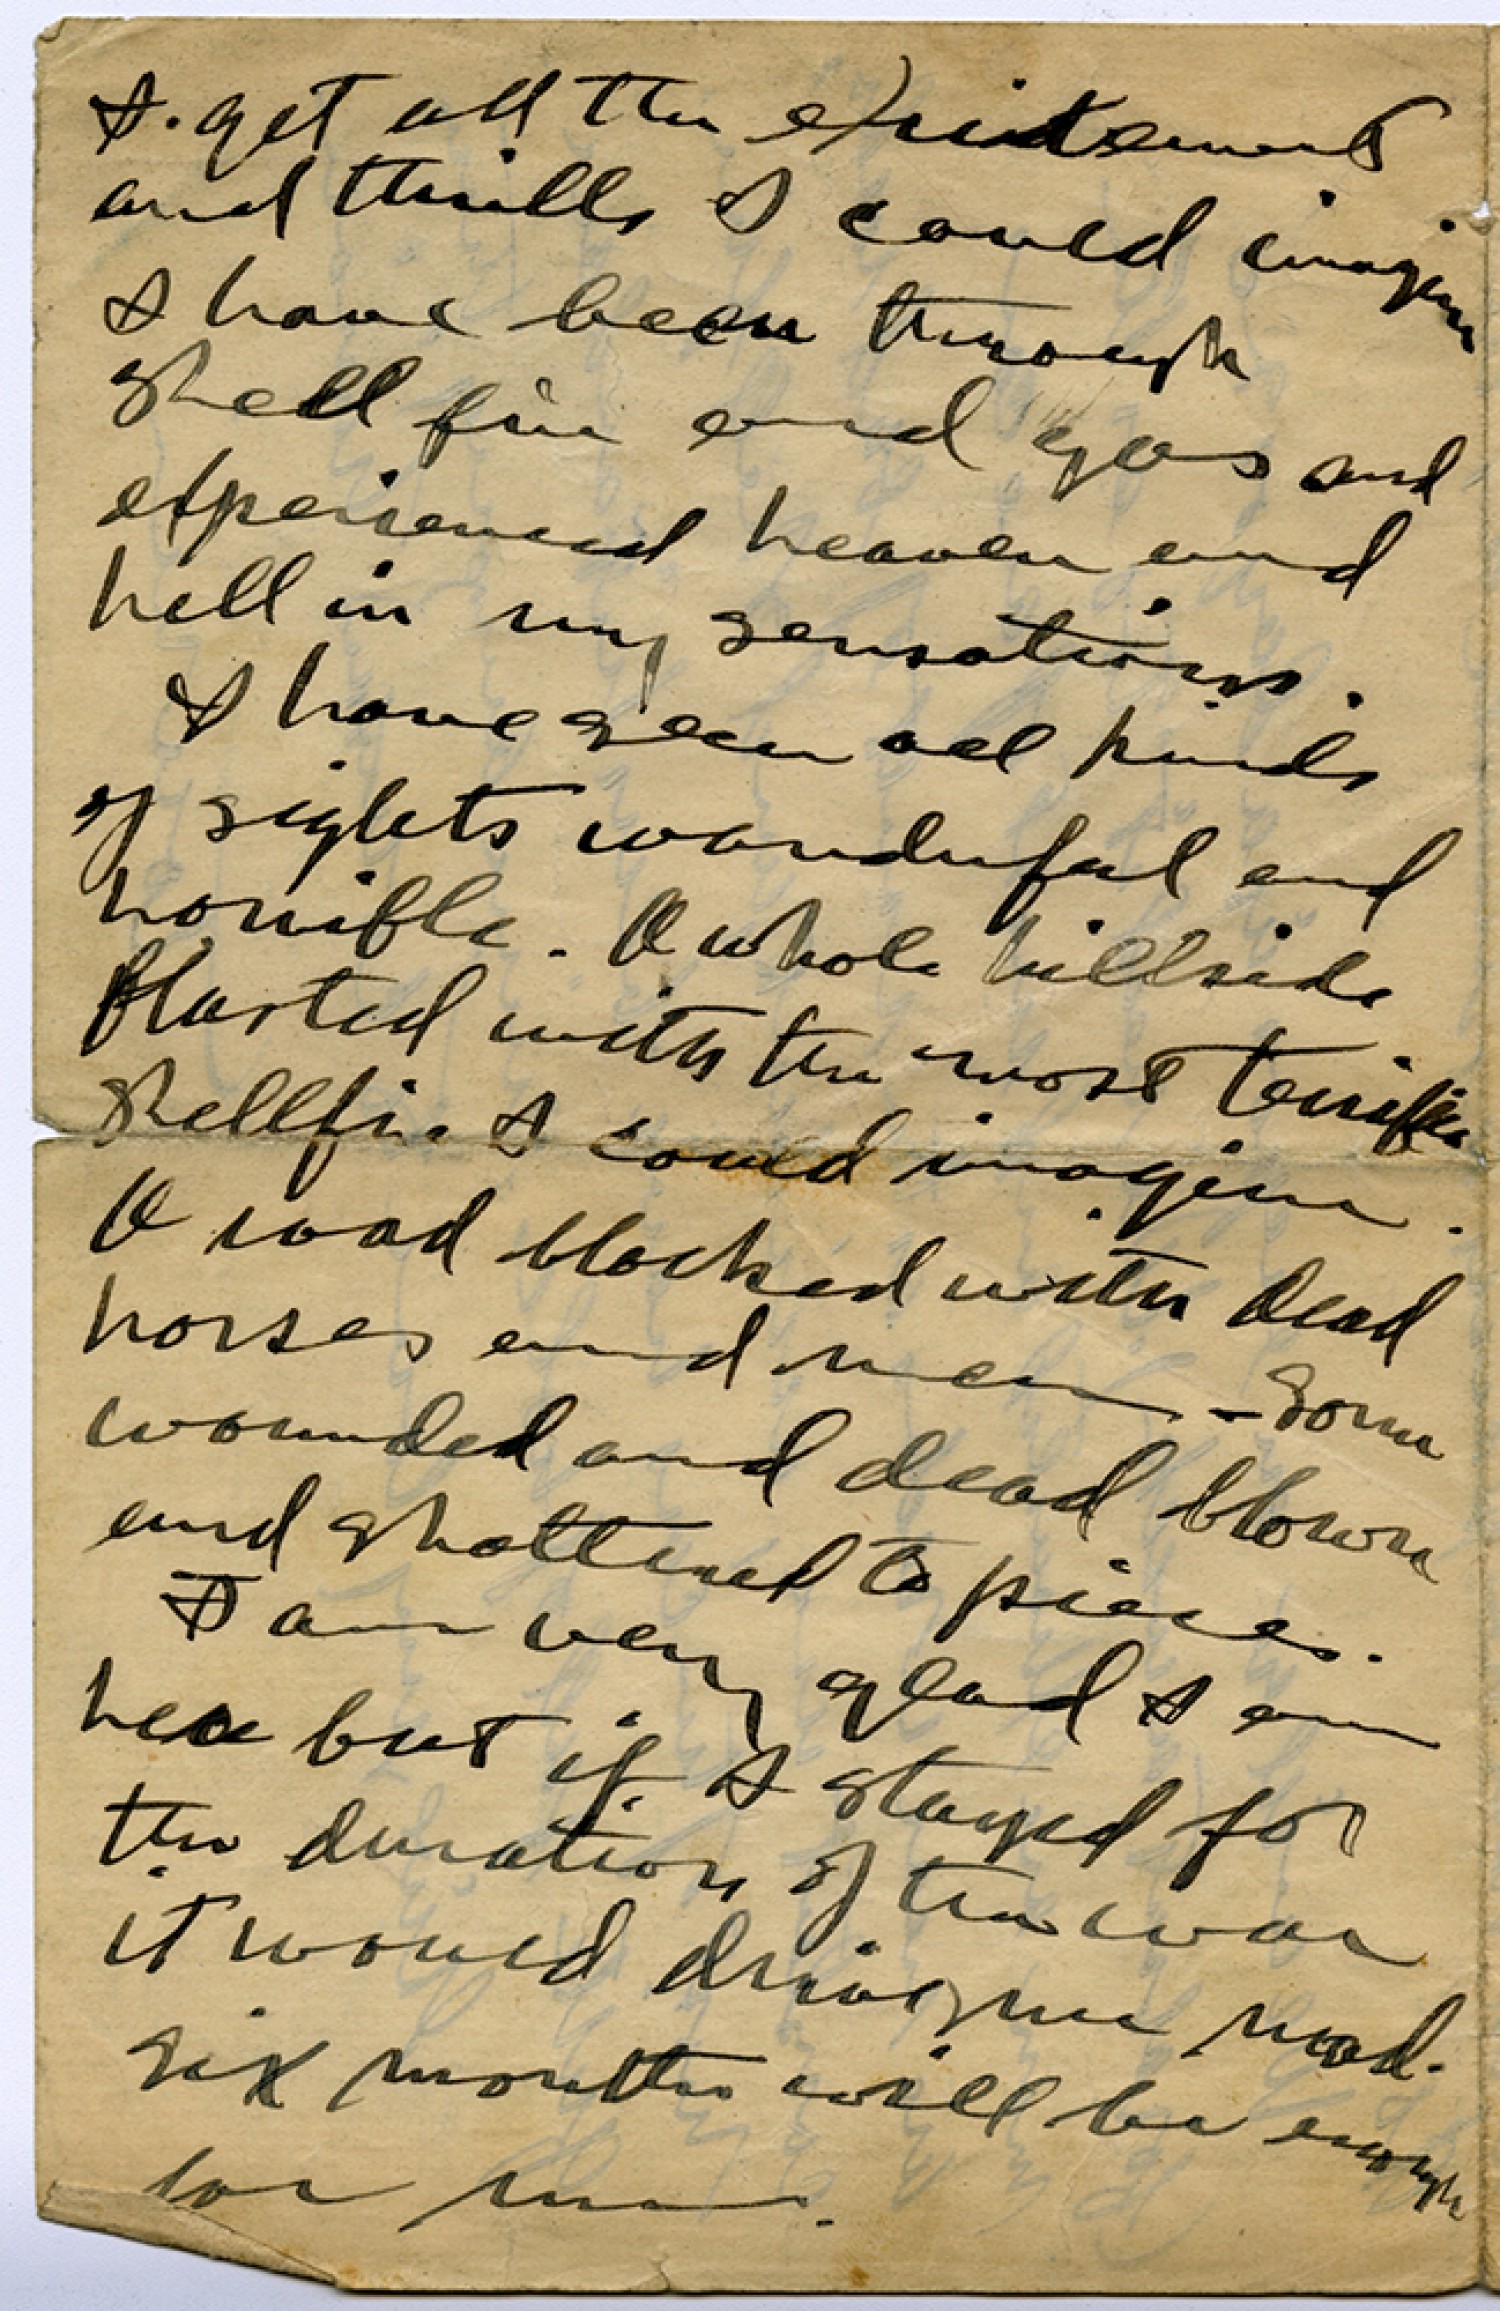 I. get all the excitement
and thrills I could imagine
I have been through
shell fire and gas and
experienced heaven and
hell in my sensations.
I have seen all kinds
of sights wonderful and
horrible. A whole hillside
blasted with the most terrific
shellfire I could imagine.
A road blocked with dead
horses and men - some
wounded and dead blown
and shattered to pieces.
I am very glad I am
here but if I stayed for
the duration of the war
it would drive me mad.
six months will be enough
for me.